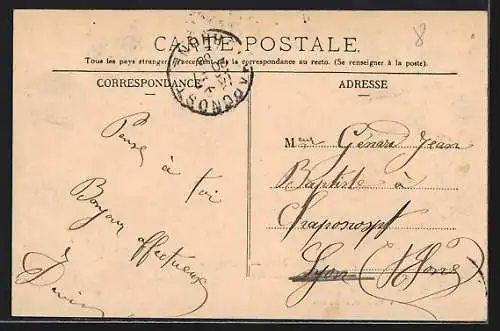 8
CARTE POSTALE
Tous les pays étrangers n'acceptent pas la correspondance au recto. (Se renseigner à la poste).
CORRESPONDANCE
ADRESSE
Pense
à toi
Bonjour
affectueux
Mr Génard Jean
Baptiste à
Chaponost
Lyon (Rhône)